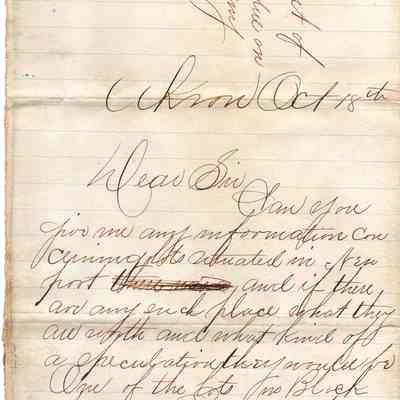 ct of
due on
Akron Oct 18th
Dear Sir
Can you
give me any information con
cerning lots situated in New
port and if there
are any such place what they
are worth and what kind of
a speculation they would be
One of the lots in Block